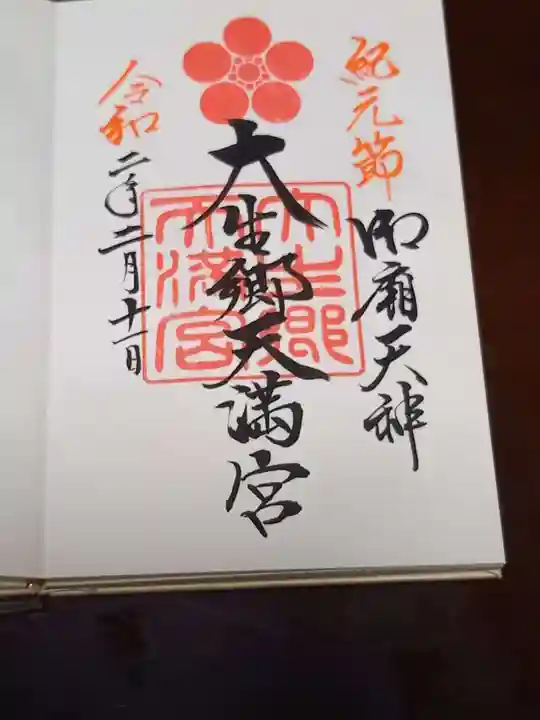 紀元節
御廟天神
大生郷天満宮
大生郷天満宮
令和二年二月十一日